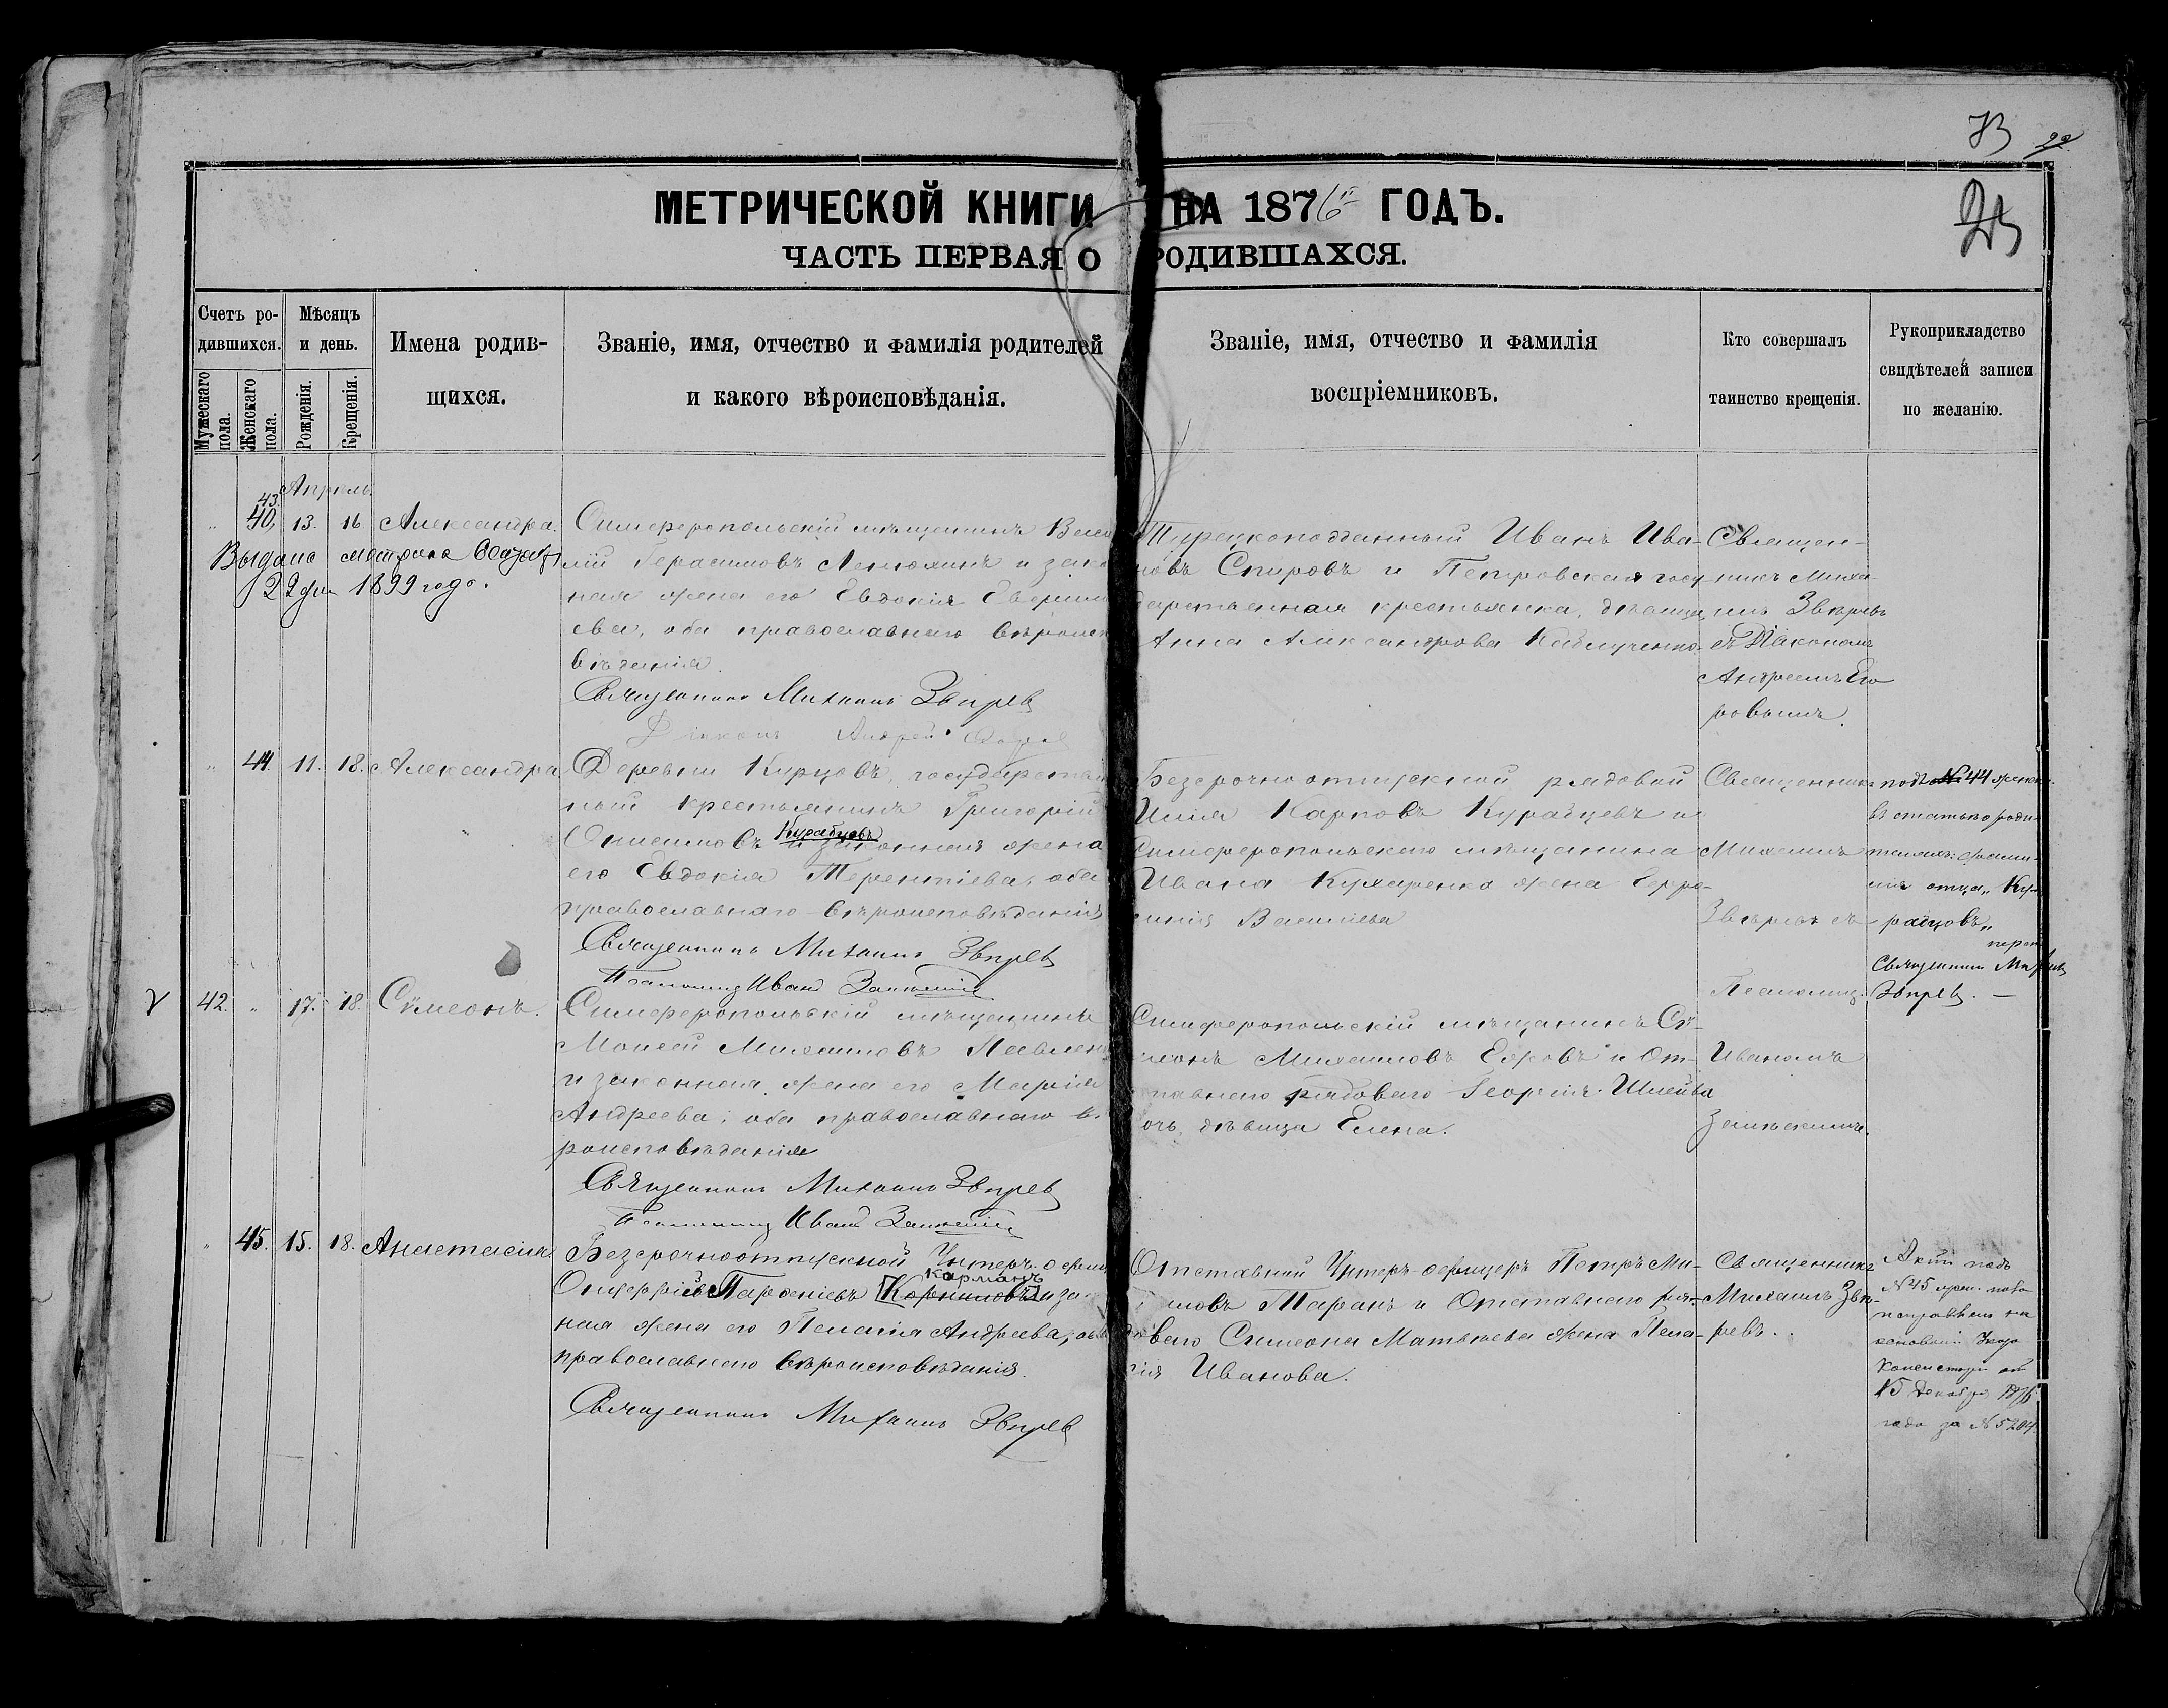 73
22
23
МЕТРИЧЕСКОЙ КНИГИ НА 1876 ГОДЪ.
ЧАСТЬ ПЕРВАЯ О РОДИВШАХСЯ.
Счетъ ро-
дившихся.
Мужескаго пола.
Женскаго пола.
Мѣсяцъ
и день.
Рожденія.
Крещенія.
Имена родив-
щихся.
Званіе, имя, отчество и фамилія родителей
и какого вѣроисповѣданія.
Званіе, имя, отчество и фамилія
воспріемниковъ.
Кто совершалъ
таинство крещенія.
Рукоприкладство
свидѣтелей записи
по желанію.
Апрѣль.
43.
40, 13. 16. Александра.
Выдана метрика
22 1899 года.
Симферопольскій мѣщанинъ Васи
лій Герасимовъ и зако
ная жена его Евдокія
ева, оба православнаго вѣроисп
вѣданія.
Священникъ Михаилъ Звѣревъ
Діаконъ Андрей
Турецкоподданный Иванъ Ива-
новъ Спировъ и Петровская госу
дарственная крестьянка, дѣвица
Анна Александрова
Священ-
никъ Миха-
илъ Звѣревъ
съ Діакономъ
Андреемъ Его
ровымъ.
44. 11. 18. Александра
Деревни Курцовъ, государствен
ный крестьянинъ Григорій
Онисимовъ Курабцовъ и законная жена
его Евдокія Терентіева, оба
православнаго вѣроисповѣданія
Священникъ Михаилъ Звѣревъ
Псаломщ Иванъ
Безсрочноотпускной рядовой
Илія Карповъ Курабцевъ и
Симферопольскаго мѣщанина
Ивана Кухаренко жена Евфро-
синія Василіева
Священникъ
Михаилъ
Звѣревъ съ
Псаломщ.
Иваномъ
подъ № 44 женск.
въ статьѣ о роди-
теляхъ: фами-
лія отца „Ку-
рабцовъ„
Священникъ Михаилъ
Звѣревъ. —
42. 17. 18. Сѵмеонъ.
Симферопольскій мѣщанинъ
Моисей Михаиловъ Павлен
и законная жена его Марія
Андреева; оба православнаго вѣ
роисповѣданія
Священникъ Михаилъ Звѣревъ
Псаломщ Иванъ
Симферопольскій мѣщанинъ Сѵ-
меонъ Михаиловъ и От-
ставнаго рядоваго Георгія
дочь, дѣвица Елена.
45. 15. 18. Анастасія.
Безсрочноотпускной Унтеръ-офиц
Онуфрій Парѳеніевъ [Корниловъ] Карманъ и за
ная жена его Пелагія Андреева, оба
православнаго вѣроисповѣданія.
Священникъ Михаилъ Звѣревъ
Отставный Унтеръ-офицеръ Петръ Ми-
ловъ Таранъ и Отставнаго ря-
доваго Симеона Матвѣева жена Пела-
гія Иванова.
Священникъ
Михаилъ Звѣ-
ревъ.
Актъ подъ
№ 45 жен. пола
исправленъ на
основаніи Указа
Консисторіи отъ
15 Декабря 1876
года за № 5204.